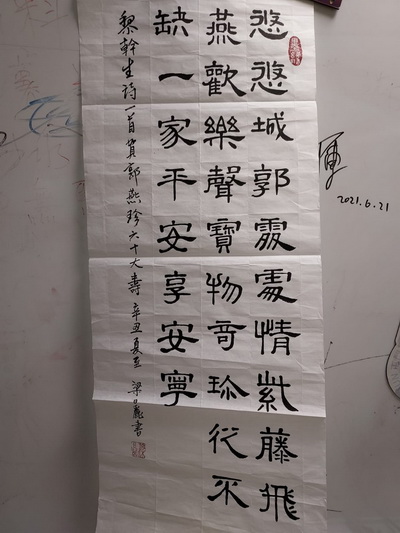 悠悠城郭處處情紫藤飛
燕歡樂聲寶物奇珍從不
缺一家平安享安寧
黎幹生诗一首賀郭燕珍六十大壽 辛丑夏至 梁書
2021.6.21